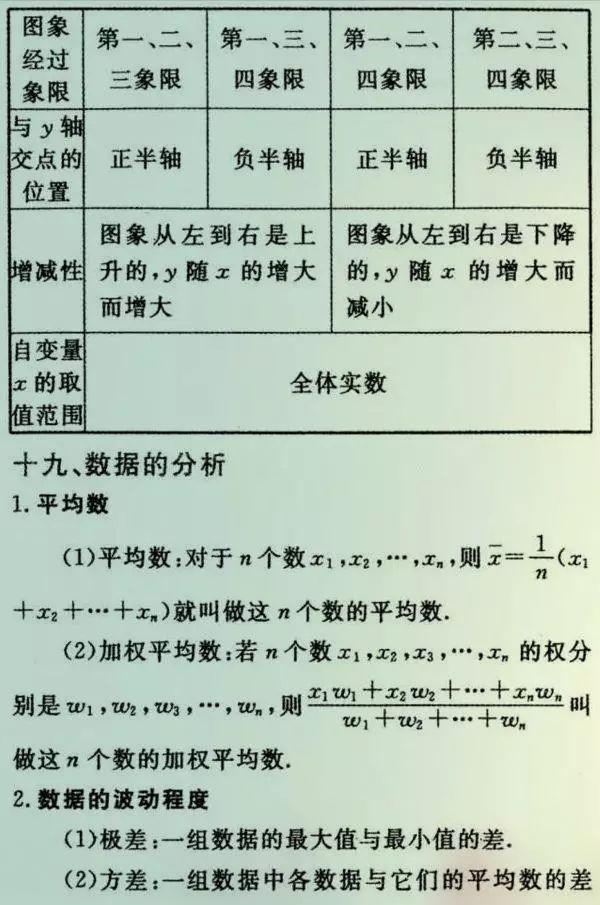 图象 第一、二、 第一、三、 第一、二、 第二、三、
经过
象限 三象限 四象限 四象限 四象限
与 y 轴
交点的 正半轴 负半轴 正半轴 负半轴
位置
图象从左到右是上 图象从左到右是下降
增减性 升的,y 随 x 的增大 的,y 随 x 的增大而
而增大 减小
自变量
x 的取 全体实数
值范围
十九、数据的分析
1. 平均数
(1)平均数:对于 n 个数 x₁,x₂,⋯,xₙ,则 x̄=1/n(x₁
+x₂+⋯+xₙ)就叫做这 n 个数的平均数.
(2)加权平均数:若 n 个数 x₁,x₂,x₃,⋯,xₙ 的权分
别是 w₁,w₂,w₃,⋯,wₙ,则 (x₁w₁+x₂w₂+⋯+xₙwₙ)/(w₁+w₂+⋯+wₙ) 叫
做这 n 个数的加权平均数.
2. 数据的波动程度
(1)极差:一组数据的最大值与最小值的差.
(2)方差:一组数据中各数据与它们的平均数的差